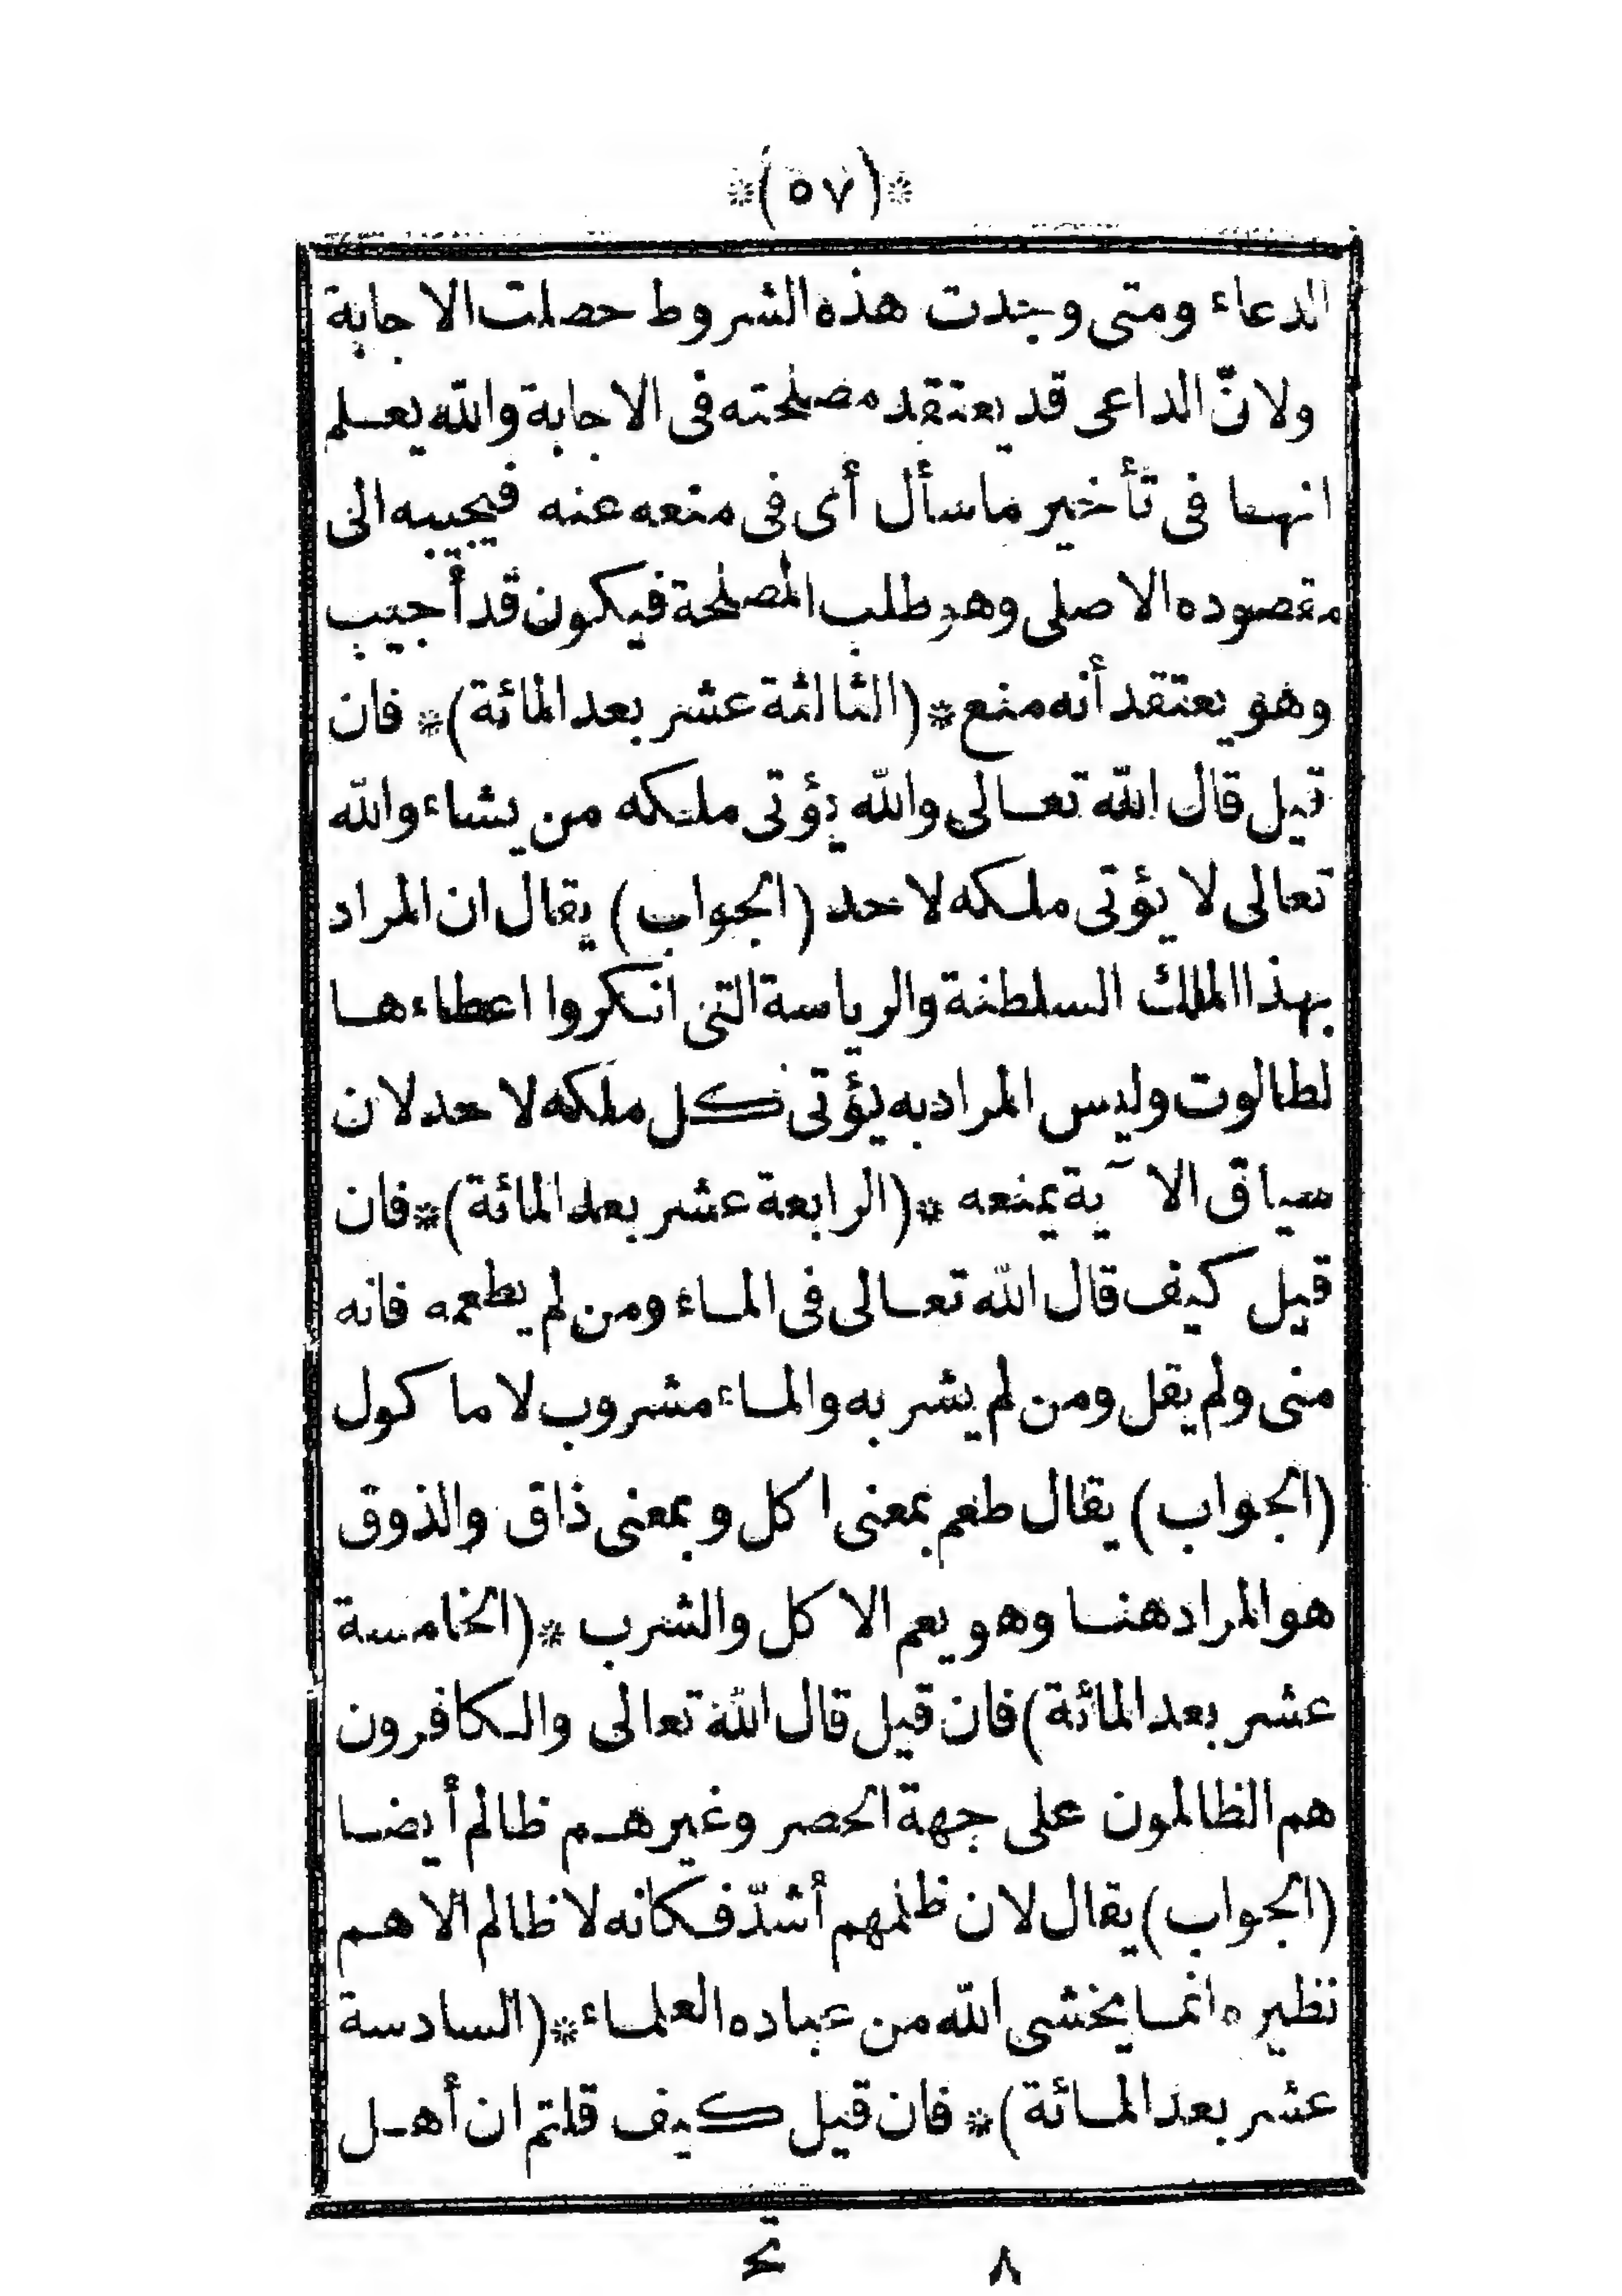 *(٥٧)*
الدعاء ومتى وجدت هذه الشروط حصلت الاجابة
ولانّ الداعى قد يعتقد مصلحته فى الاجابة والله يعلم
انها فى تأخير ماسأل أى فى منعه عنه فيجيبه الى
مقصوده الاصلى وهو طلب المصلحة فيكون قد أجيب
وهو يعتقد أنه منع *(الثالثة عشر بعد المائة)* فان
قيل قال الله تعالى والله يؤتى ملكه من يشاء والله
تعالى لا يؤتى ملكه لاحد (الجواب) يقال ان المراد
بهذا الملك السلطنة والرياسة التى انكروا اعطاءها
لطالوت وليس المراد به يؤتى كل ملكه لاحد لان
سياق الآية يمنعه *(الرابعة عشر بعد المائة)* فان
قيل كيف قال الله تعالى فى الماء ومن لم يطعمه فانه
منى ولم يقل ومن لم يشربه والماء مشروب لا ماكول
(الجواب) يقال طعم بمعنى اكل وبمعنى ذاق والذوق
هو المراد هنا وهو يعم الاكل والشرب *(الخامسة
عشر بعد المائة) فان قيل قال الله تعالى والكافرون
هم الظالمون على جهة الحصر وغيرهم ظالم أيضا
(الجواب) يقال لان ظلمهم أشدّ فكانه لا ظالم الا هم
نظيره انما يخشى الله من عباده العلماء *(السادسة
عشر بعد المائة)* فان قيل كيف قلتم ان أهل
٨ تح